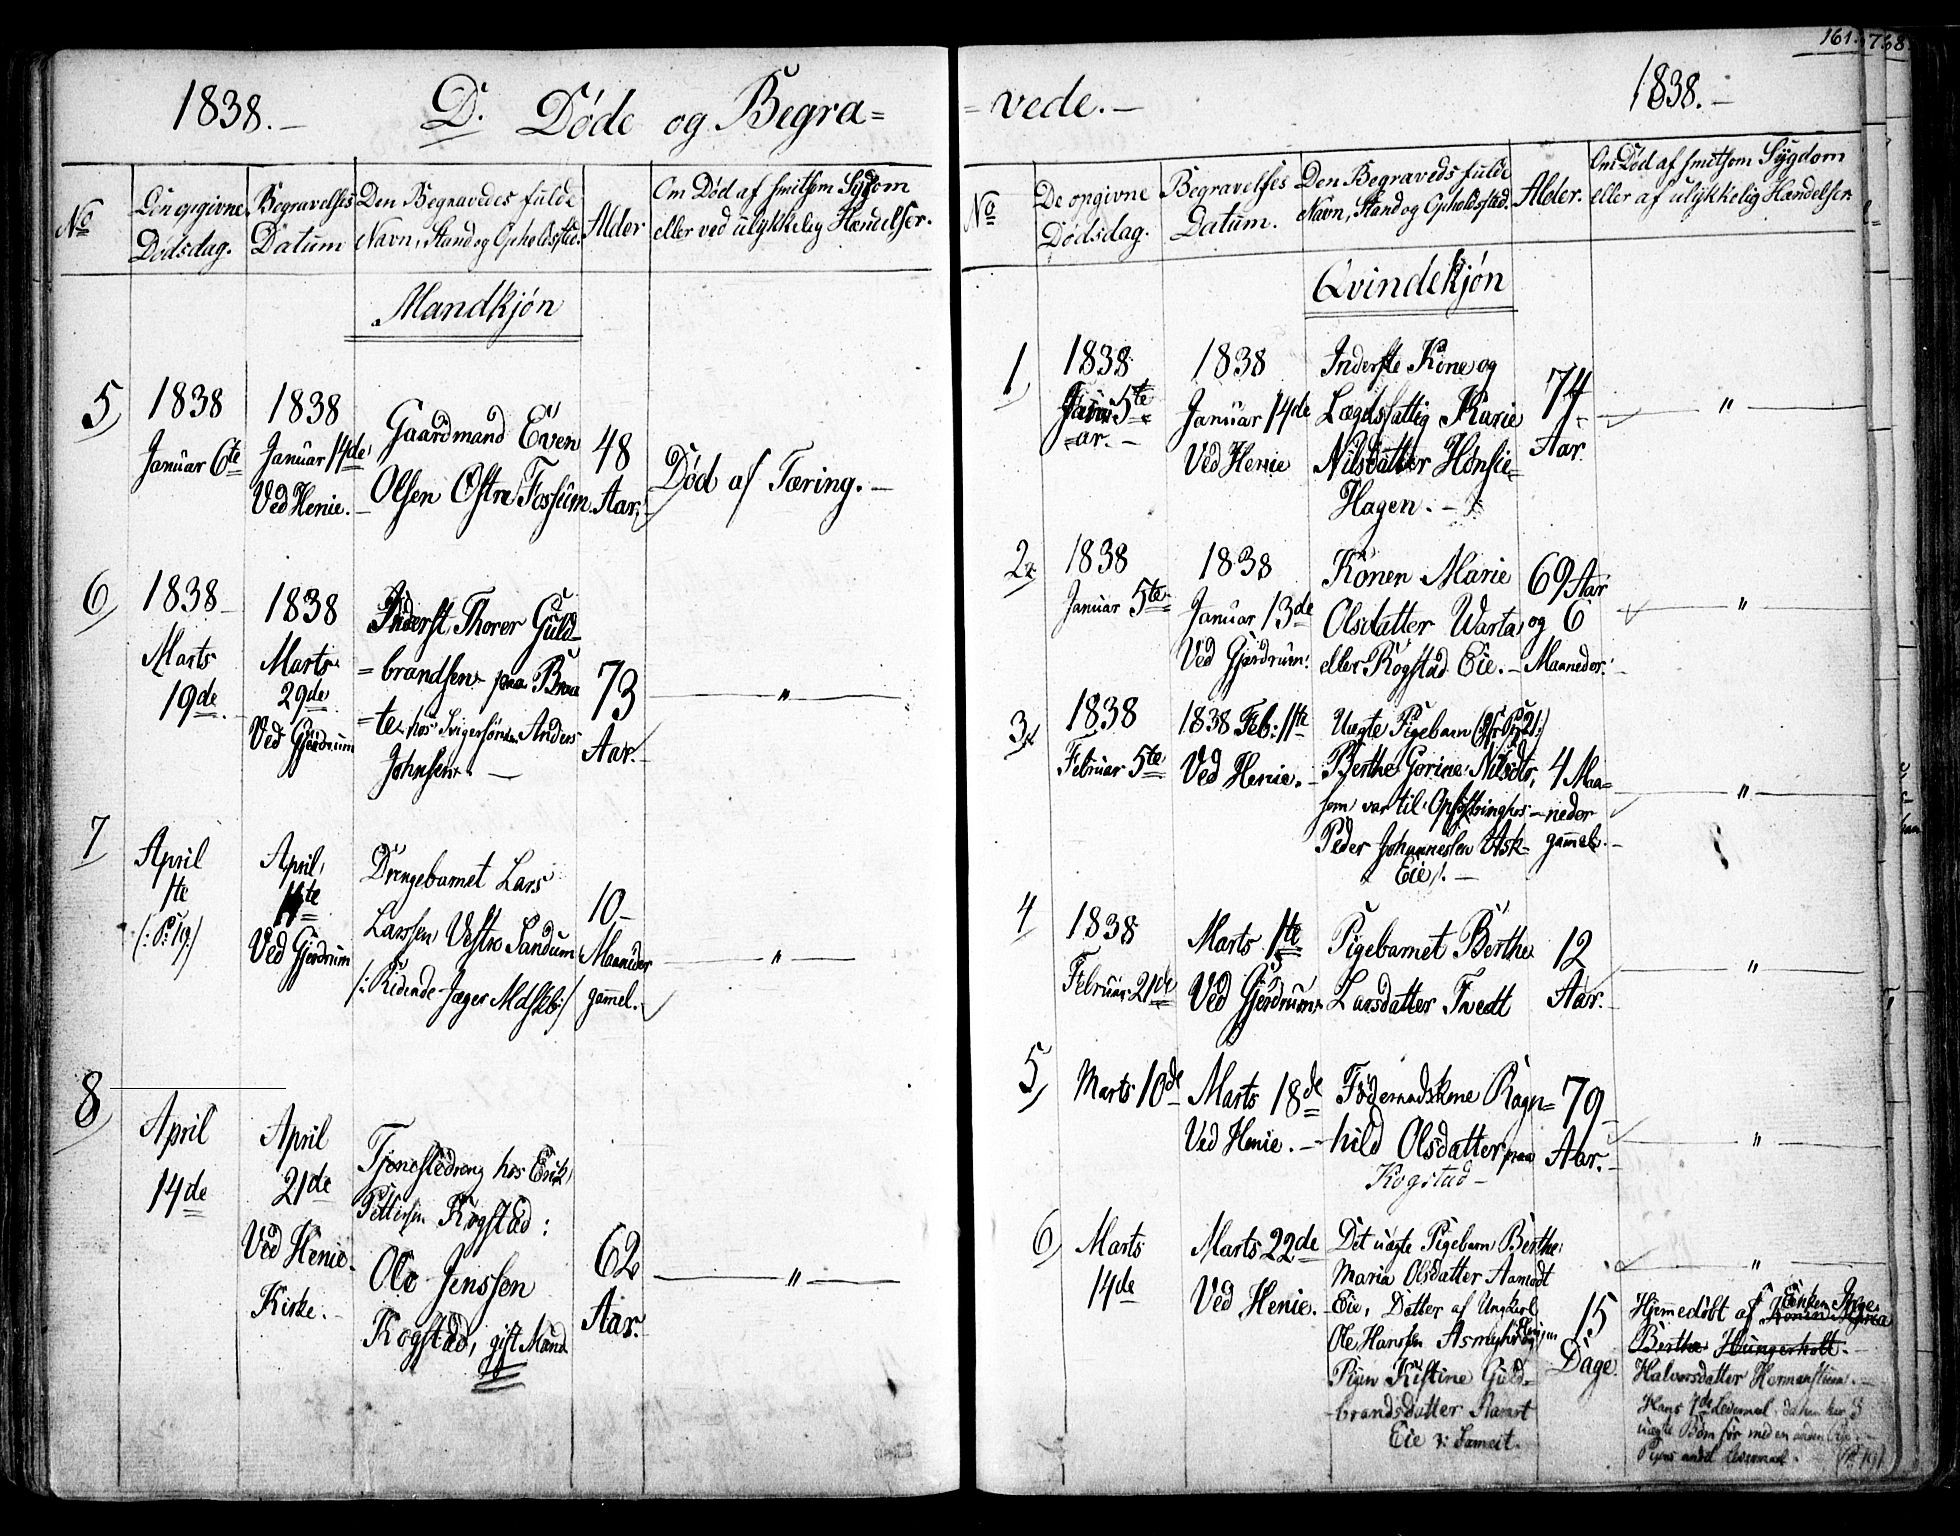 161.
738.
1838.
D. Døde og Begra=
Den opgivne Dødsdag.
Begravelses Datum
Den Begravedes fulde Navn, Stand og Opholdssted.
Alder
Om Død af smitsom Sygdom eller ved ulykkelig Hændelser.
No
Mandkjøn
5
1838
Januar 6te
1838
Januar 14de
Ved Henie.
Gaardmand Even
Olsen Østre Fossum
48
Aar.
Død af Tæring.
6
1838
Marts
19de
1838
Marts
29de
Ved Gjerdrum
Inderst Thorer Guld-
=brandsen paa Braa
=te hos Svigersønnen Anders
Johnsen.
73
Aar.
"
7
April
1te
(: P: 19:)
April
11te
Ved Gjerdrum
Drengebarnet Lars
Larssen Vestre Sandum
/: Ridende Jæger Mdskb:/
10
Maaneder
gamel.
"
8
April
14de
April
21de
Ved Henie
Kirke.
Tjenestedreng hos Erik
Pettersen Kogstad:
Ole Jenssen
Kogstad, gift Mand
62
Aar.
"
=vede.
1838.
No
De opgivne Dødsdag.
Begravelses Datum.
Den Begraveds fulde Navn, Stand og Opholdssted.
Alder.
Om Død af smitsom Sygdom eller af ulykkelig Hændelser
Qvindekjøn
1
1838
Janu 5te
=ar.
1838
Januar 14de
Ved Henie
Inderste Kone og
Lægdsfattig Karie
Nilsdatter Hønsie=
Hagen.
74
Aar.
"
2
1838
Januar 5te
1838
Januar 13de
Ved Gjerdrum.
Konen Marie
Olsdatter Warta
eller Kogstad Eie.
69 Aar
og 6
Maaneder.
"
3
1838
Februar 5te
1838 Feb: 11te
Ved Henie.
Uægte Pigebarn
Berthe Gorine Nilsdtr,
som var til Opfostring hos
Peder Johannesen Ask-
Eie/.
4 Maa=
neder
gamel.
"
4
1838
Februar 21de
Marts 1te
Ved Gjerdrum
Pigebarnet Berthe
Larsdatter Tvedt
12
Aar.
"
5
Marts 10de
Marts 18de
Ved Henie.
Føderaadskone Ragn=
hild Olsdatter paa
Kogstad
79
Aar.
"
6
Marts
14de
Marts 22de
Ved Henie.
Det uægte Pigebarn Berthe
Maria Olsdatter Aamodt
Eie, Datter af Ungkarl
Ole Hanssen Asmyhr og
Pigen Kistine Guld-
brandsdatter Aamot
Eie
15
Dage.
"
Hjemmedøbt af Enken Inge
Berthe Hungerholt.
Halvorsdatter Hermanstuen.
Hans 1de Leiermaal, da han har
uægte Børn før med en anden Pige.
Pigens andet Leiermaal.
(P: 19)